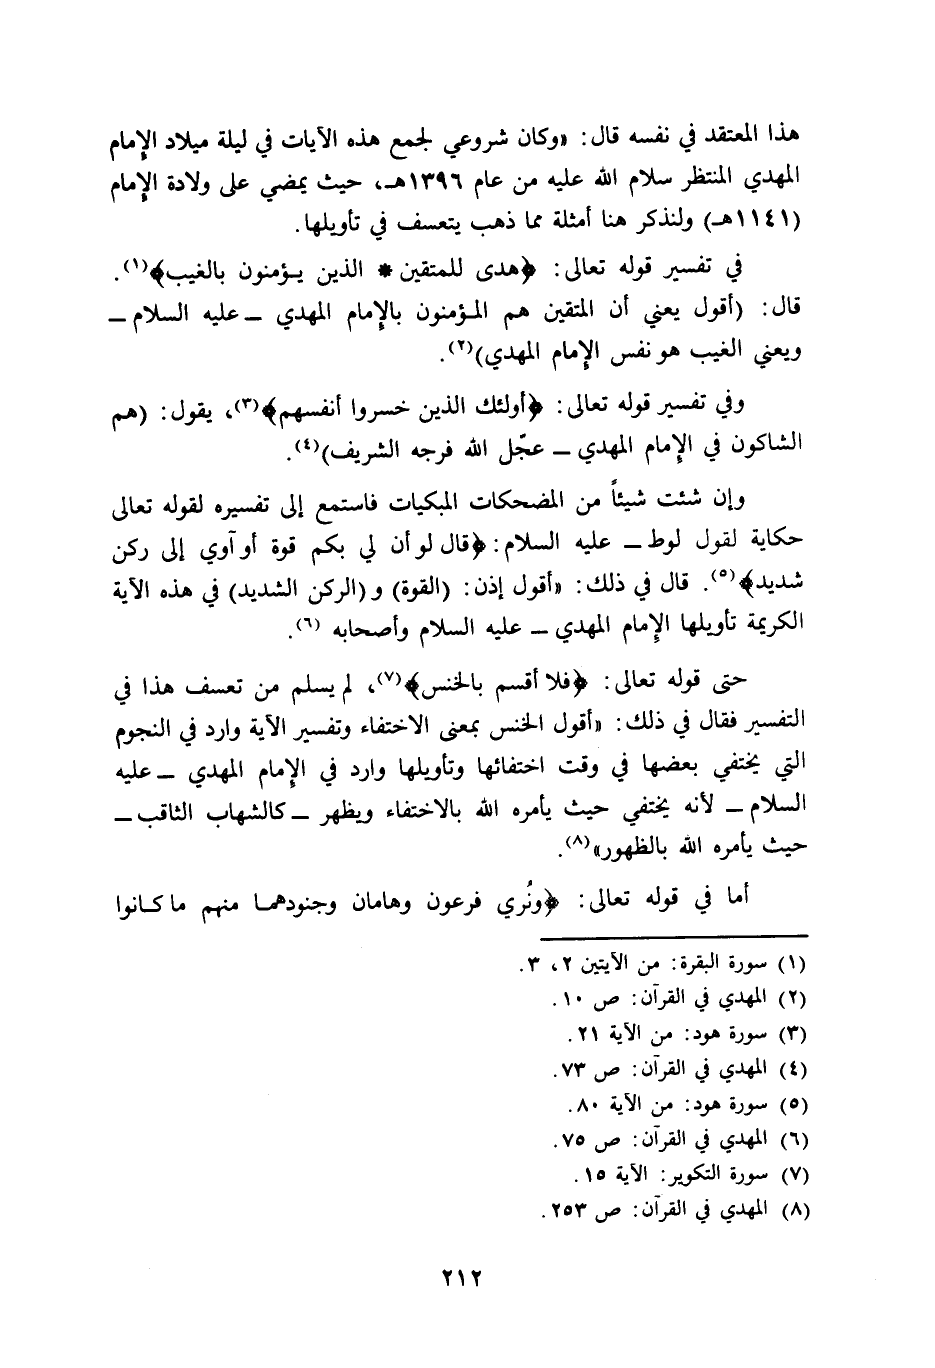 هذا المعتقد في نفسه قال: «وكان شروعي لجمع هذه الآيات في ليلة ميلاد الإمام
المهدي المنتظر سلام الله عليه من عام ١٣٩٦هـ، حيث يمضي على ولادة الإمام
(١١٤١هـ) ولنذكر هنا أمثلة مما ذهب يتعسف في تأويلها.
في تفسير قوله تعالى: ﴿هدى للمتقين * الذين يؤمنون بالغيب﴾(١).
قال: (أقول يعني أن المتقين هم المؤمنون بالإمام المهدي ــ عليه السلام ــ
ويعني الغيب هو نفس الإمام المهدي)(٢).
وفي تفسير قوله تعالى: ﴿أولئك الذين خسروا أنفسهم﴾(٣)، يقول: (هم
الشاكون في الإمام المهدي ــ عجّل الله فرجه الشريف)(٤).
وإن شئت شيئاً من المضحكات المبكيات فاستمع إلى تفسيره لقوله تعالى
حكاية لقول لوط ــ عليه السلام: ﴿قال لو أن لي بكم قوة أو آوي إلى ركن
شديد﴾(٥). قال في ذلك: «أقول إذن: (القوة) و(الركن الشديد) في هذه الآية
الكريمة تأويلها الإمام المهدي ــ عليه السلام وأصحابه (٦).
حتى قوله تعالى: ﴿فلا أقسم بالخنس﴾(٧)، لم يسلم من تعسف هذا في
التفسير فقال في ذلك: «أقول الخنس بمعنى الاختفاء وتفسير الآية وارد في النجوم
التي يختفي بعضها في وقت اختفائها وتأويلها وارد في الإمام المهدي ــ عليه
السلام ــ لأنه يختفي حيث يأمره الله بالاختفاء ويظهر ــ كالشهاب الثاقب ــ
حيث يأمره الله بالظهور»(٨).
أما في قوله تعالى: ﴿ونُري فرعون وهامان وجنودهما منهم ما كانوا
(١) سورة البقرة: من الآيتين ٢، ٣.
(٢) المهدي في القرآن: ص ١٠.
(٣) سورة هود: من الآية ٢١.
(٤) المهدي في القرآن: ص ٧٣.
(٥) سورة هود: من الآية ٨٠.
(٦) المهدي في القرآن: ص ٧٥.
(٧) سورة التكوير: الآية ١٥.
(٨) المهدي في القرآن: ص ٢٥٣.
٢١٢